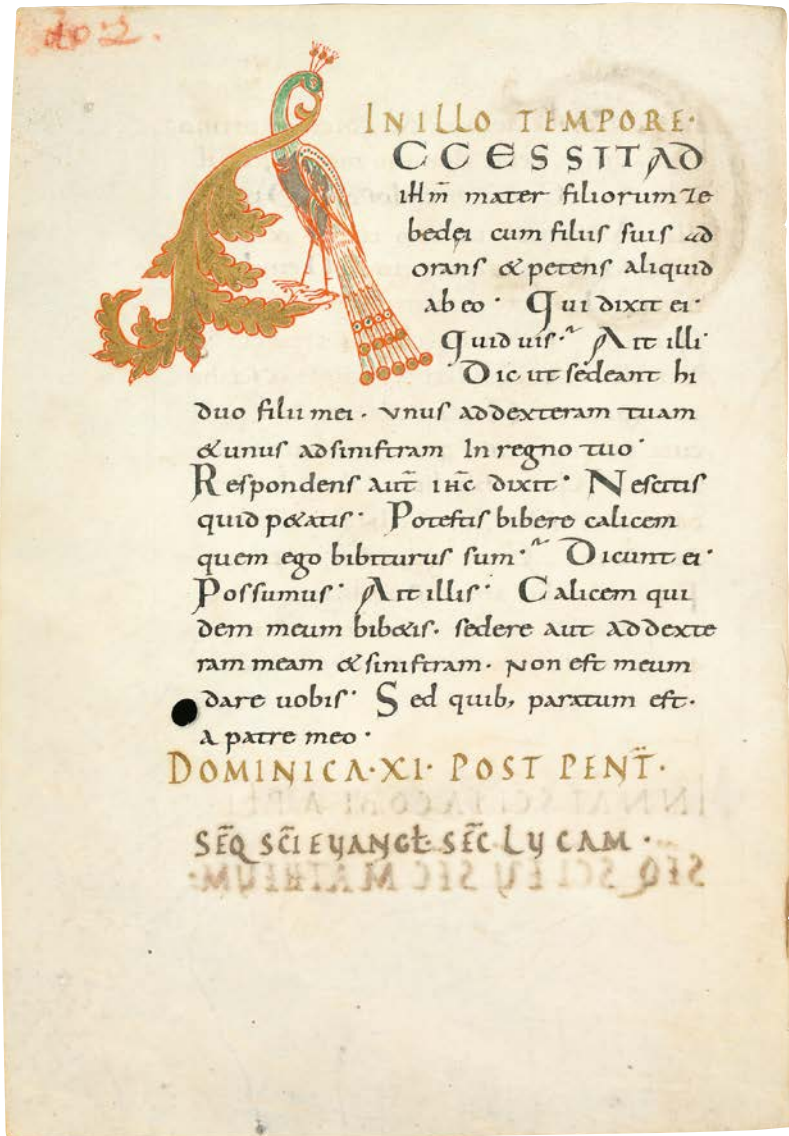 IN ILLO TEMPORE·
CCESSIT AD
ihm̄ mater filiorum ze
bedei cum filiis suis ad
orans & petens aliquid
ab eo· Qui dixit ei·
Quid uis·~ Ait illi·
Dic ut sedeant hi
duo filii mei· vnus ad dexteram tuam
& unus ad sinistram In regno tuo·
Respondens aut̄ ihc̄ dixit· Nescitis
quid p&atis· Potestis bibere calicem
quem ego bibiturus sum·~ Dicunt ei·
Possumus· Ait illis· Calicem qui
dem meum bib&is· sedere aut ad dexte
ram meam & sinistram· Non est meum
dare uobis· Sed quib, paratum est·
a patre meo·
DOMINICA·XI· POST PENT̄·
SEQ̄ SCĪ EVANGƚ SEC̄ LVCAM·